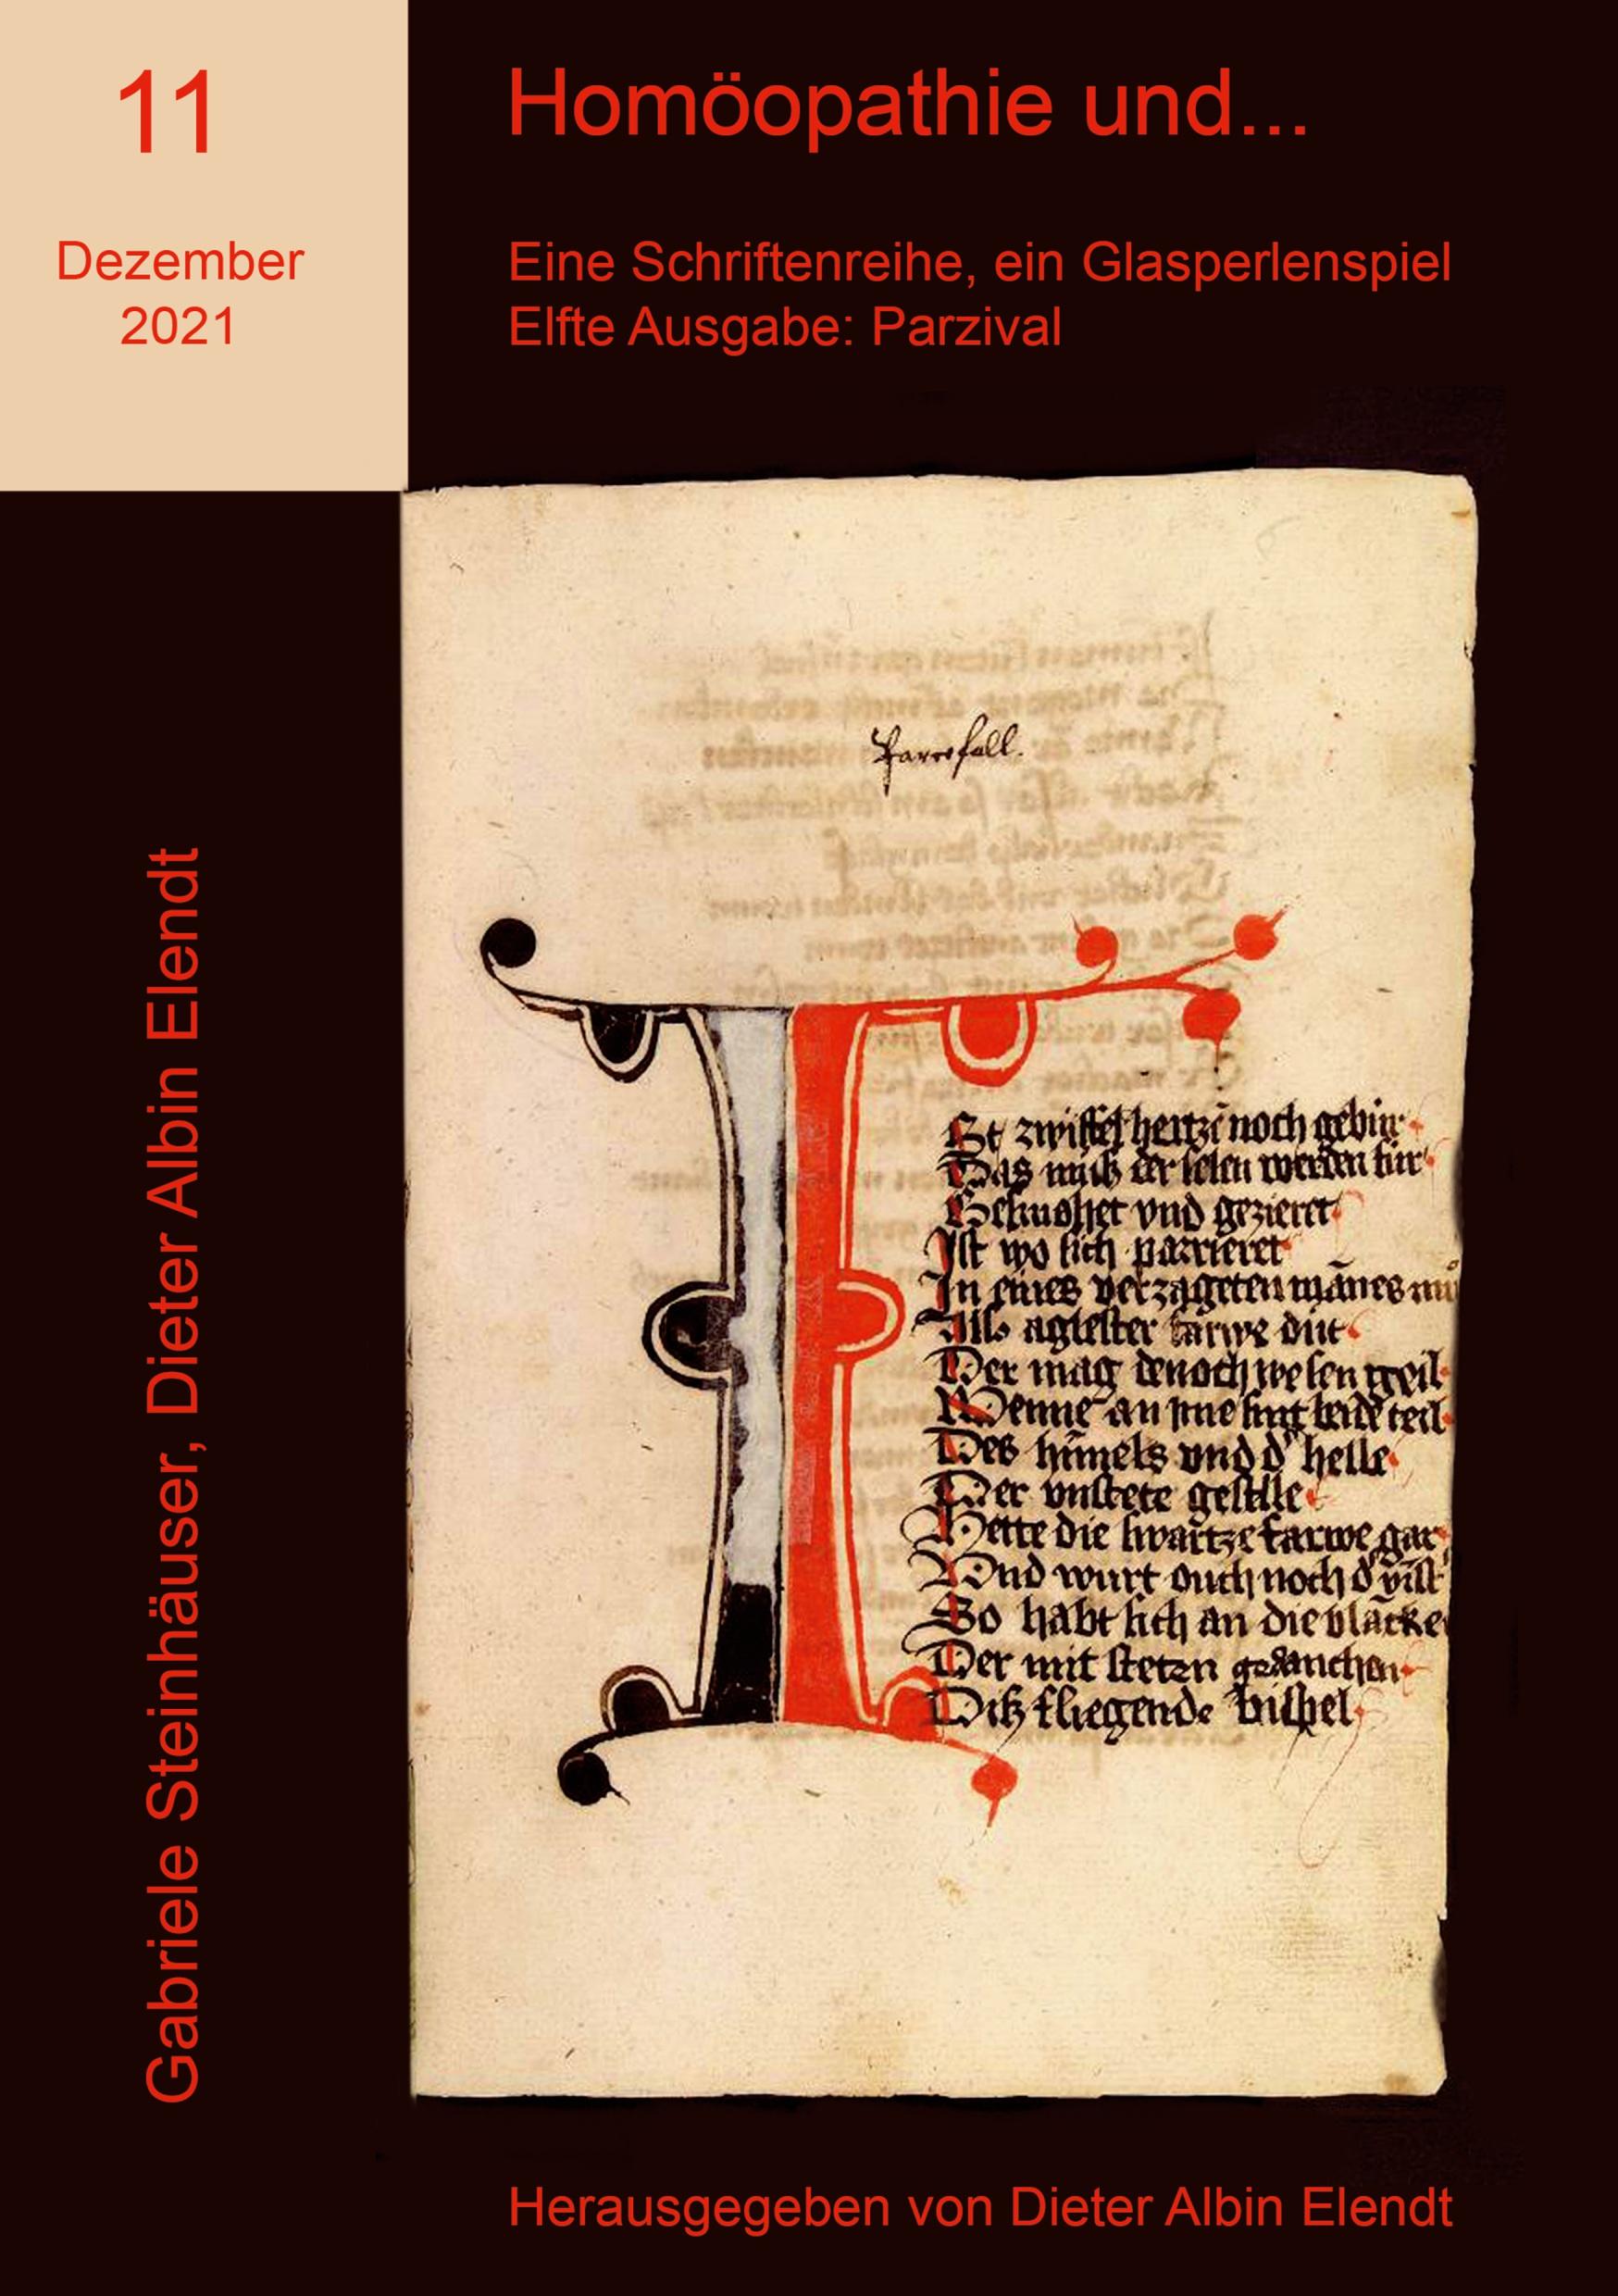 11
Dezember
2021
Homöopathie und...
Eine Schriftenreihe, ein Glasperlenspiel
Elfte Ausgabe: Parzival
Gabriele Steinhäuser, Dieter Albin Elendt
Parcefall.
I
St zwiffel hertzē noch gebur
Das muß der selen werden sur
Geſmohet vnd gezieret
Ist wo sich parrieret
In eines verzageten mānes mů
Also aglester farwe dut
Der mag denoch wesen geil
Wenne an yme sint beide teil
Des himels vnd d' helle
Der vnstete geselle
Hette die swartze farwe gar
Vnd wurt ouch noch d'
So habt sich an die blācke
Der mit steten gedancken
Diß fliegende bispel
Herausgegeben von Dieter Albin Elendt